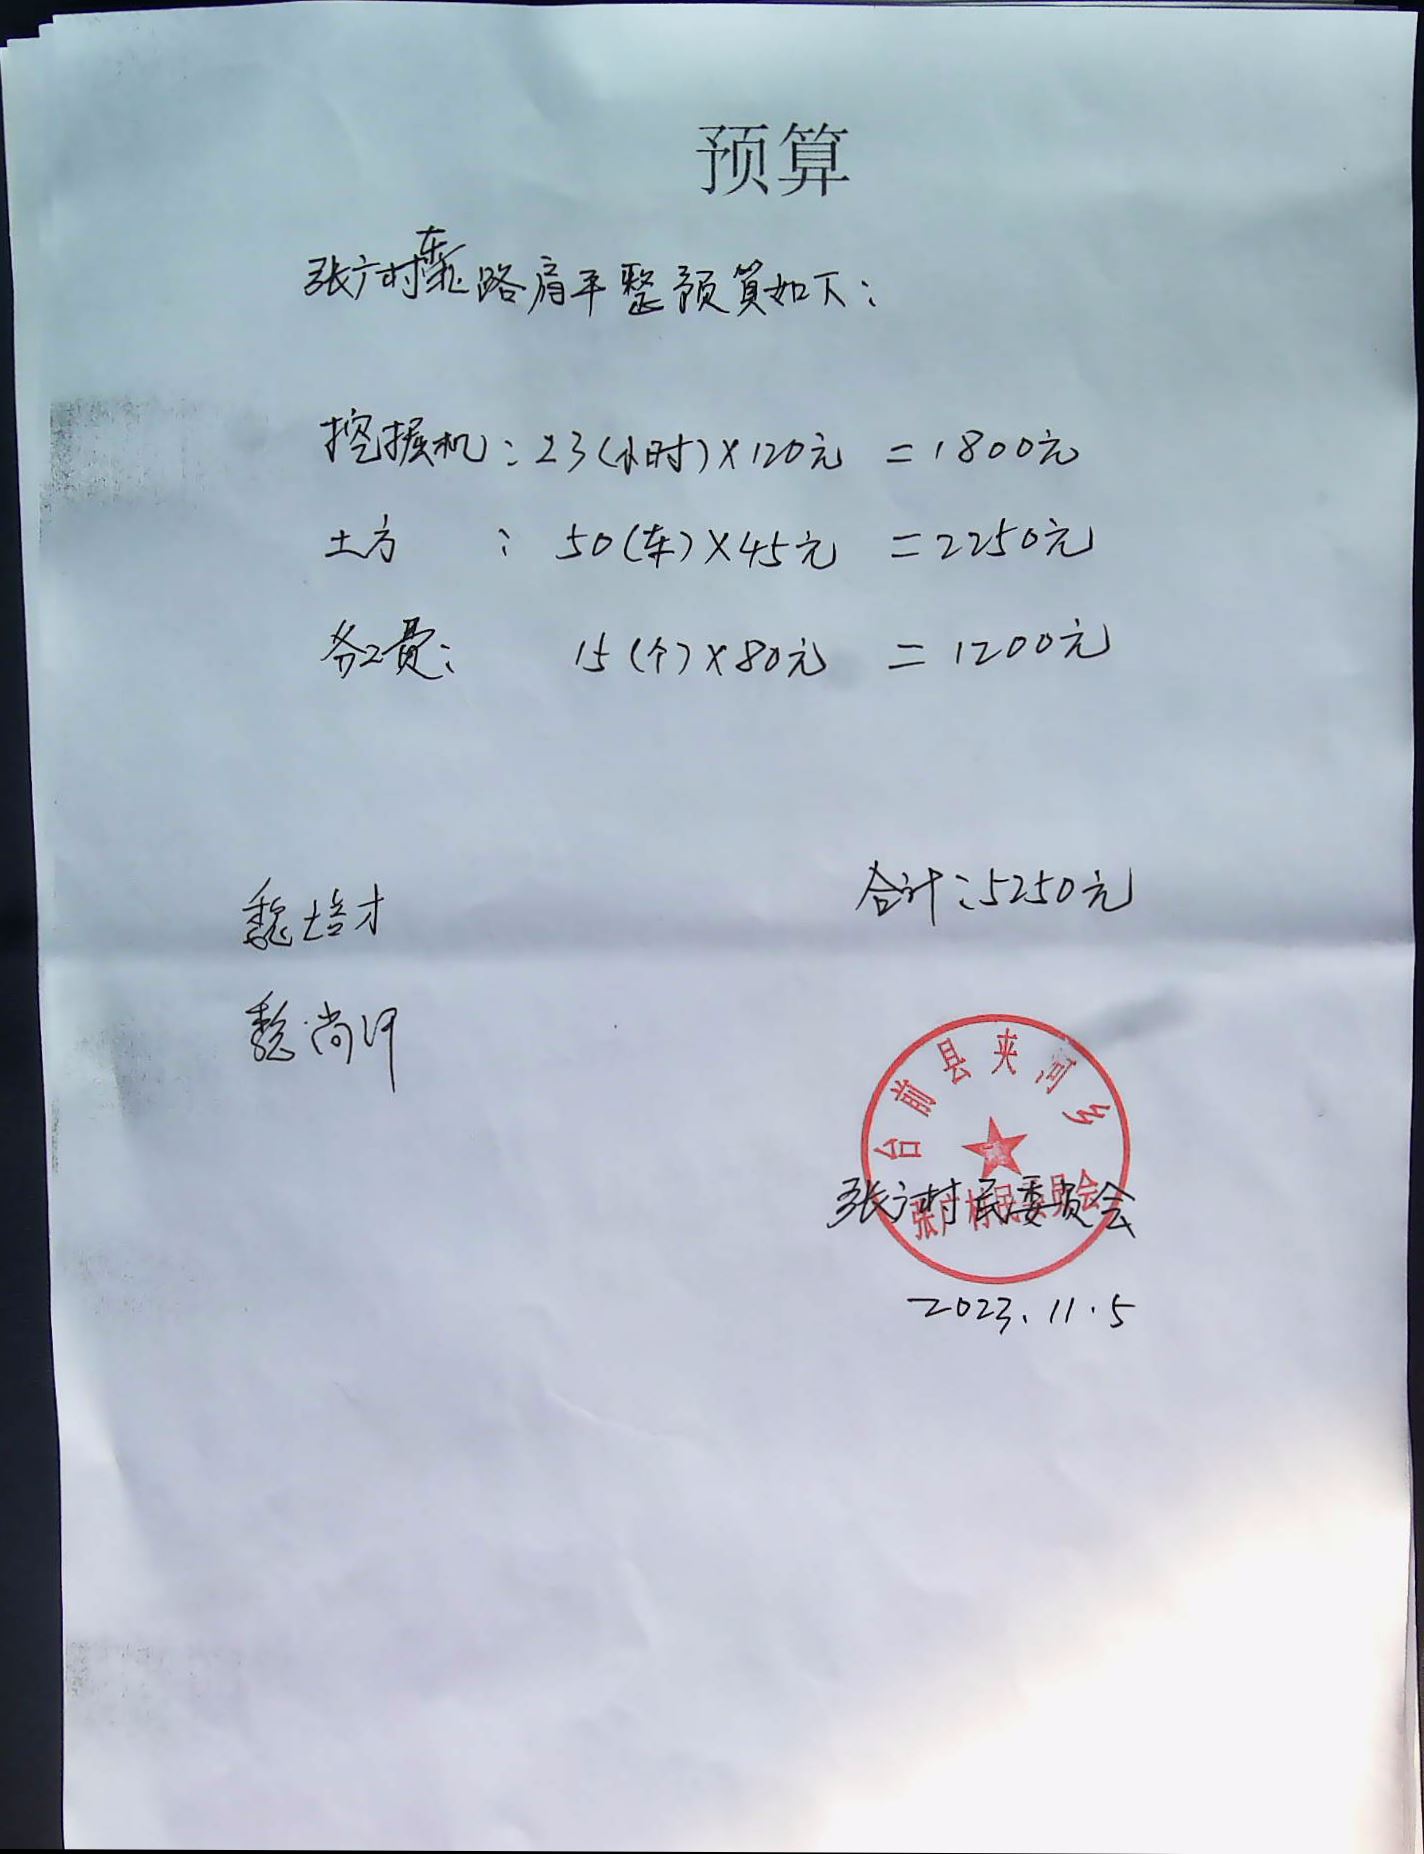 预算
张广村东路肩平整预算如下：
挖掘机：23(小时)×120元 =1800元
土方：50(车)×45元 =2250元
务工费：15(个)×80元 =1200元
合计：5250元
魏培才
魏尚
台前县夹河乡
张广村民委员会
张广村民委员会
2023.11.5